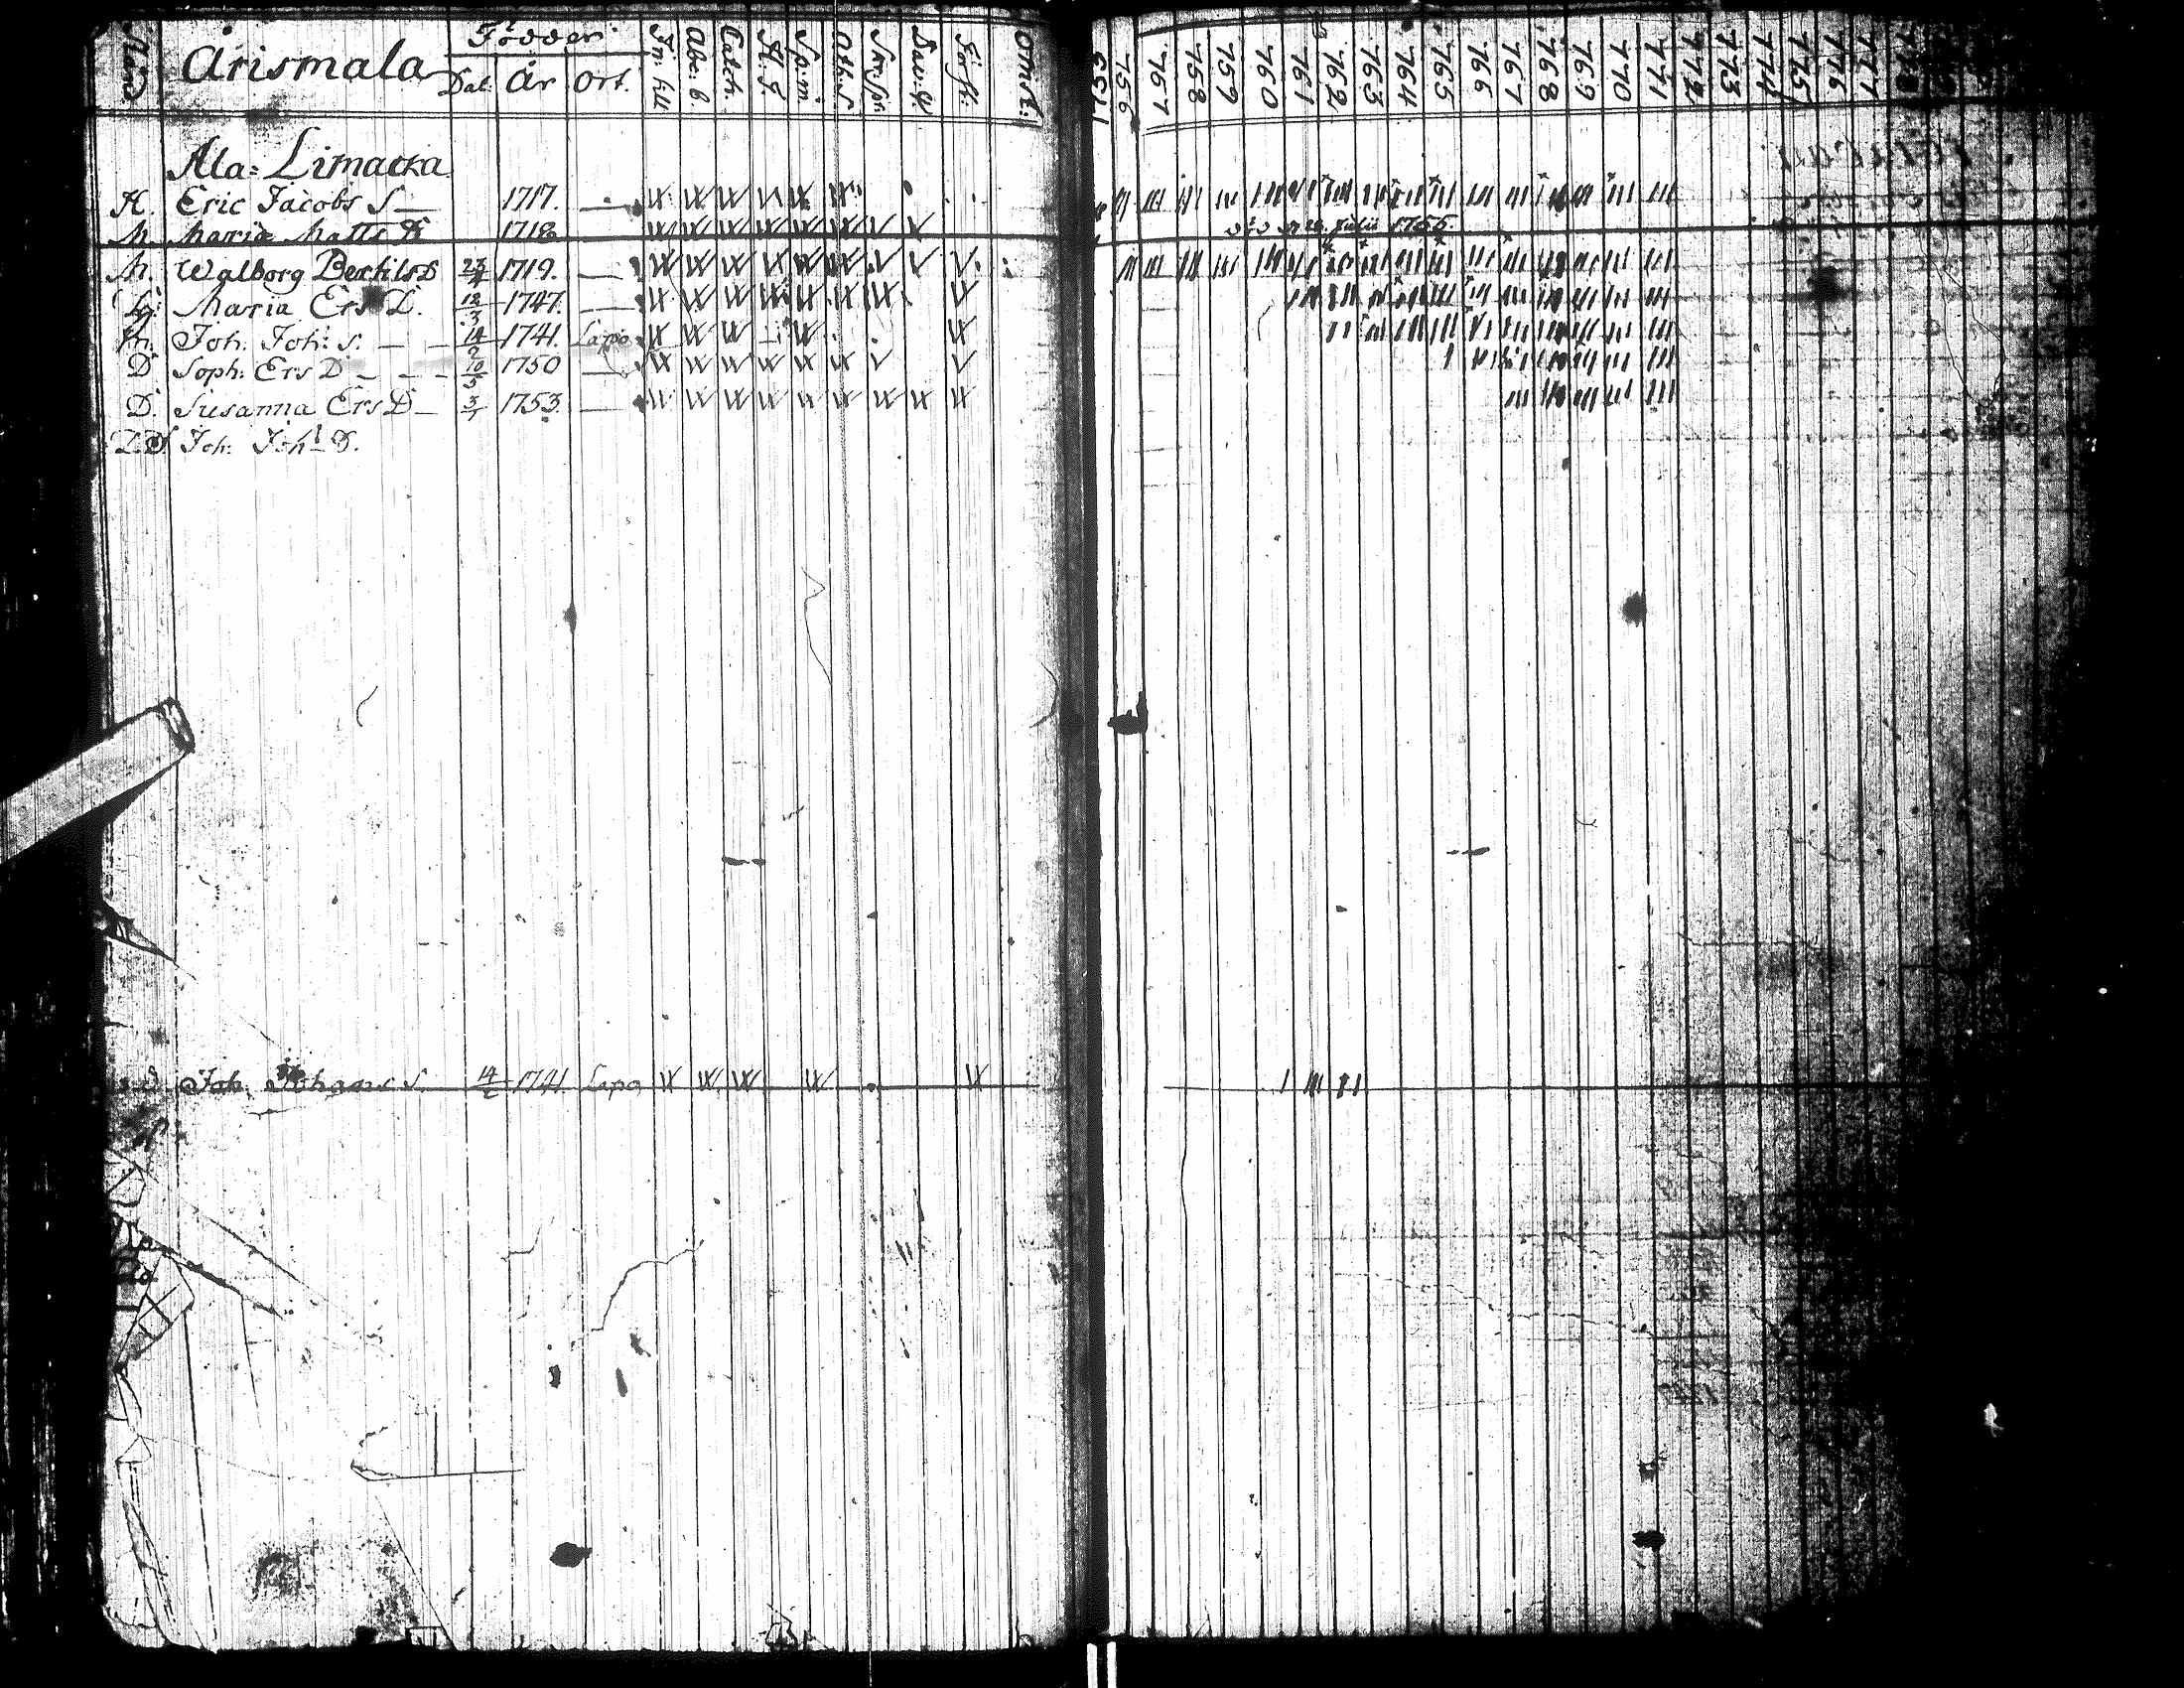 Årismala Födder
Dat: År Ort. In: lill Abc: b. Catch. H. T. Sp: m. Ath. S. Dav. Omst:
1755 756 757 758 759 760 761 762 763 764 765 766 767 768 769 770 771 772 773 774 775 776 777
Ala= Limacka
H. Eric Jacobs S — 1717. —
M. Maria Matts D 1718 Julii 1755.
M. Walborg Bertils D 23/4 1719. —
D: Maria Ers D. 12/3 1747. —
M. Joh. Joh: S. — — 14/2 1741. Lapo
D Soph: Ers D — — - 10/5 1750 —
D. Susanna Ers D — 3/1 1753. —
D.D Joh: Joh: D.
Joh. Johans S. 14/2 1741. Lapo